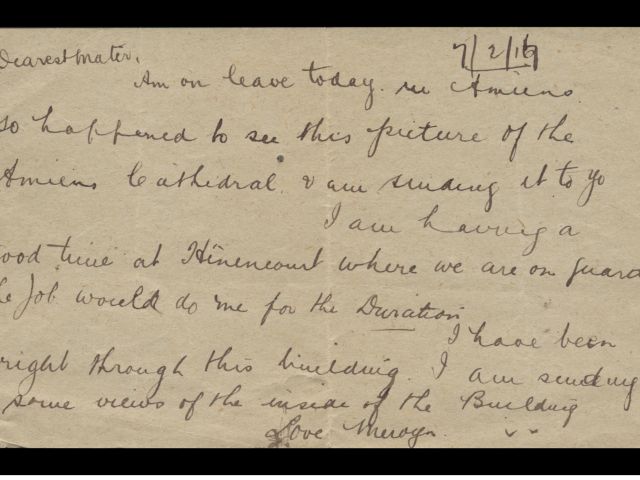 Dearest Mater, 7/2/16
Am on leave today in Amiens
so happened to see this picture of the
Amiens Cathedral & am sending it to yo
I am having a
good time at Hénencourt where we are on guard
he Job would do me for the Duration
I have been
right through this building. I am sending
some views of the inside of the Building
Love Mervyn